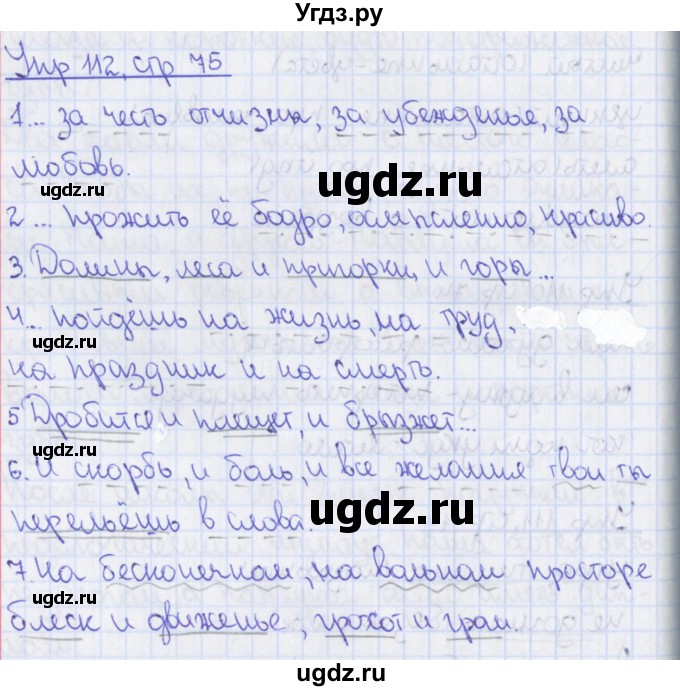 Угдз.ру
Упр 112, стр 75
1... за честь отчизны, за убежденье, за
любовь.
ugdz.ru
ugdz.ru
2... прожить её бодро, осмысленно, красиво.
3. Долины, леса и пригорки, и горы...
4... пойдёшь на жизнь, на труд,
ugdz.ru
на праздник и на смерть.
5 Дробится и плещет, и брызжет...
ugdz.ru
6. И скорбь, и боль, и все желания твои ты
ugdz.ru
перельёшь в слова.
7. На бесконечном, на вольном просторе
ugdz.ru
блеск и движенье, грохот и гром.
ugdz.ru